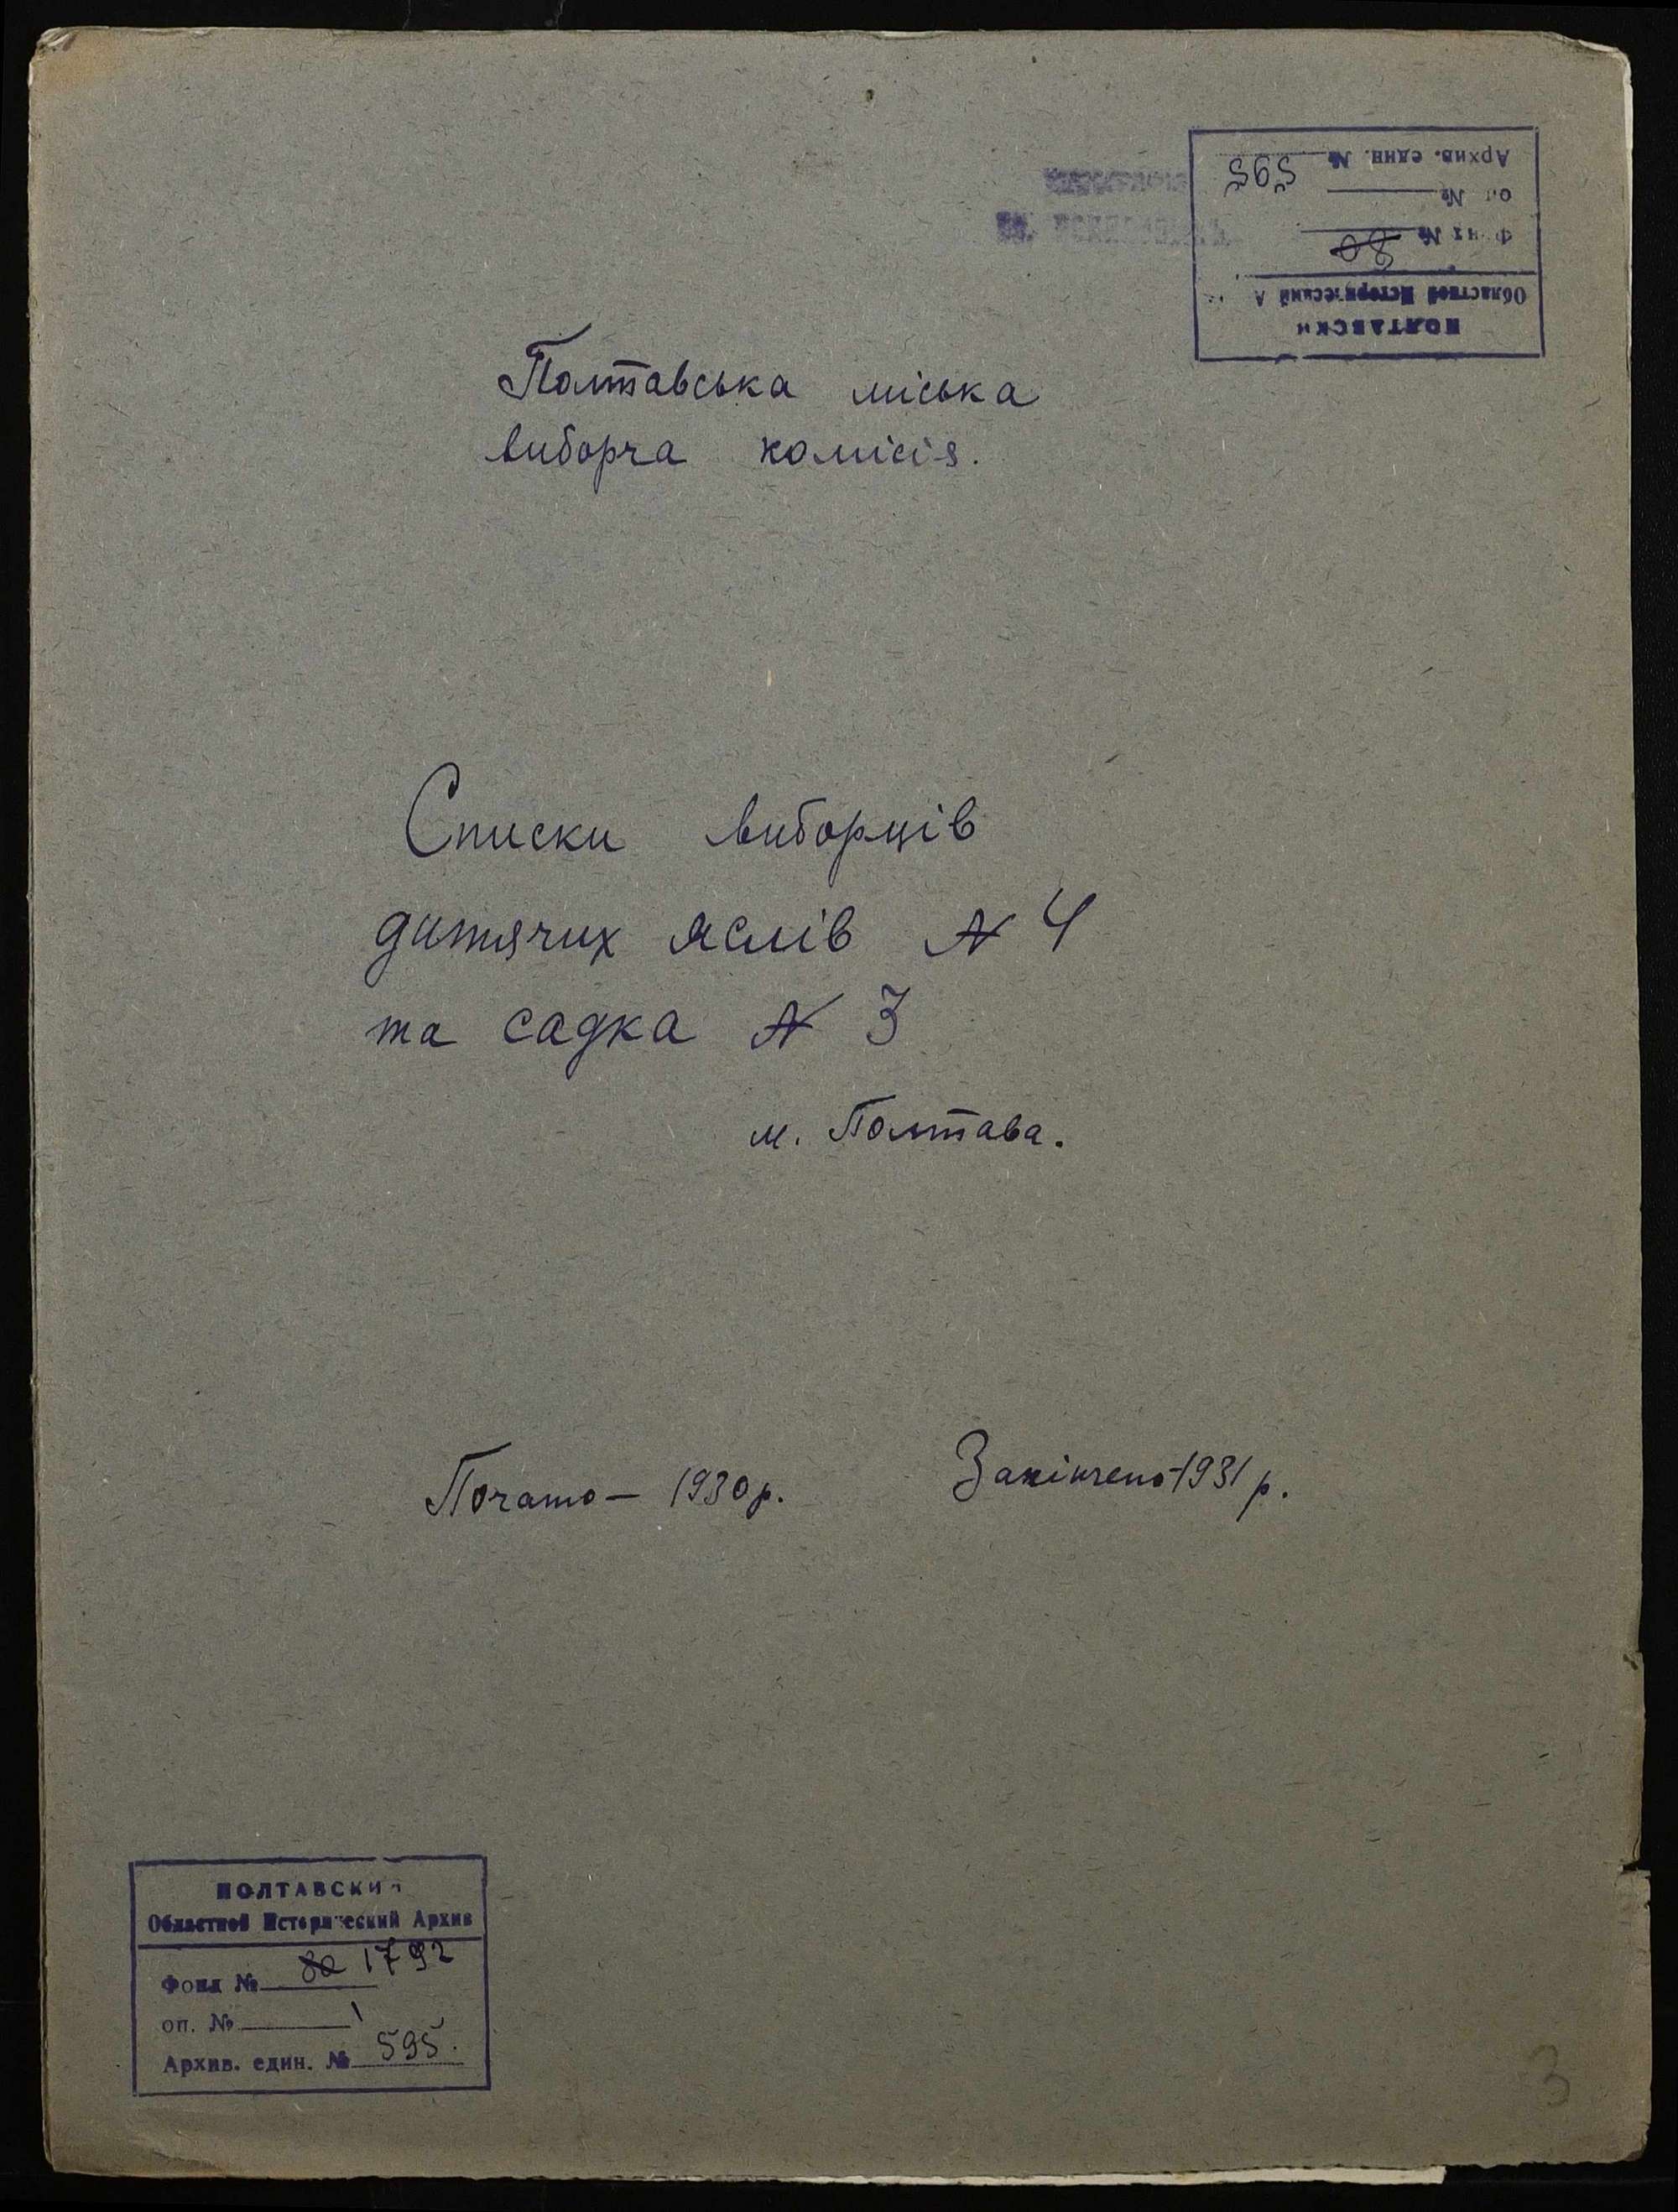 Архив. един. № 595
оп №
Фонд № 80
Областной Исторический А
ПОЛТАВСКИ
Полтавська міська
виборча комісія.
Списки виборців
дитячих яслів № 4
та садка № 3
м. Полтава.
Почато — 1930 р.
Закінчено - 1931 р.
ПОЛТАВСКИЙ
Областной Исторический Архив
Фонд № 80 1792
оп. № 1
Архив. един. № 595.
3